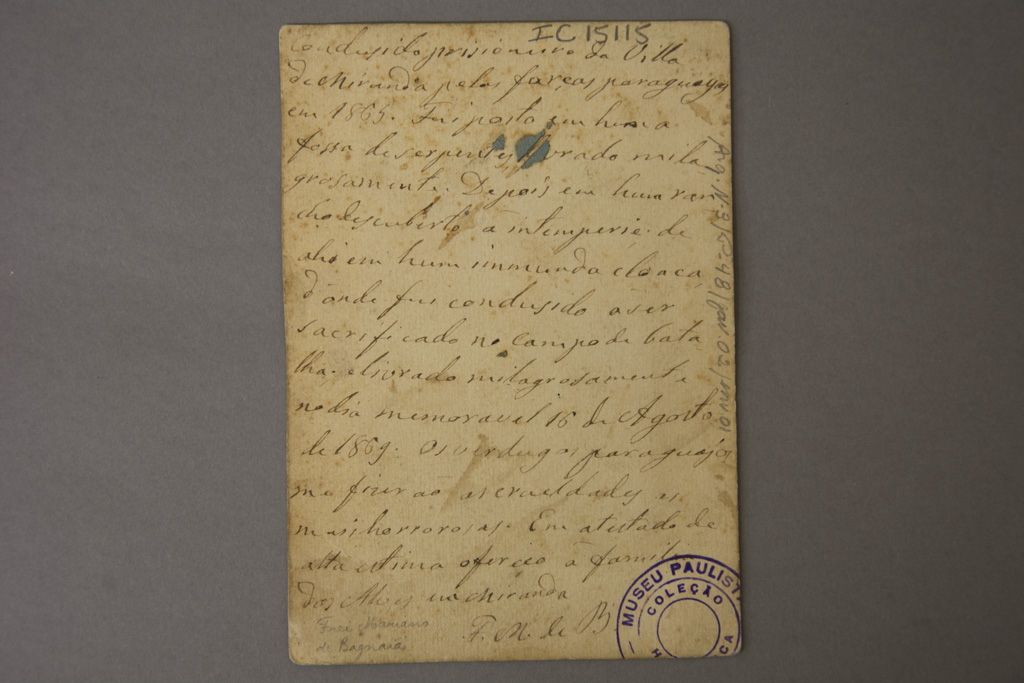 IC 15115
Condusido prisioneiro da Villa
de Miranda pelas forças paraguayas
em 1865. Fui posto em huma
fossa de serpentes livrado mila
grosamente. Depois em hum ran
cho descuberto à intemperie. de
ahi em hum immunda cloaca
d'onde fui condusido à ser
sacrificado no Campo de bata
lha. e livrado milagrosamente
no dia memoravel 16 de Agosto
de 1869. Os verdugos paraguajos
me fizerão as crueldades as
mais horrorosas. Em atestado de
alta estima ofereço à famili
dos Alves em Miranda
F. M. de B
Frei Mariano
de Bagnaia
MUSEU PAULIST
COLEÇÃO
H CA